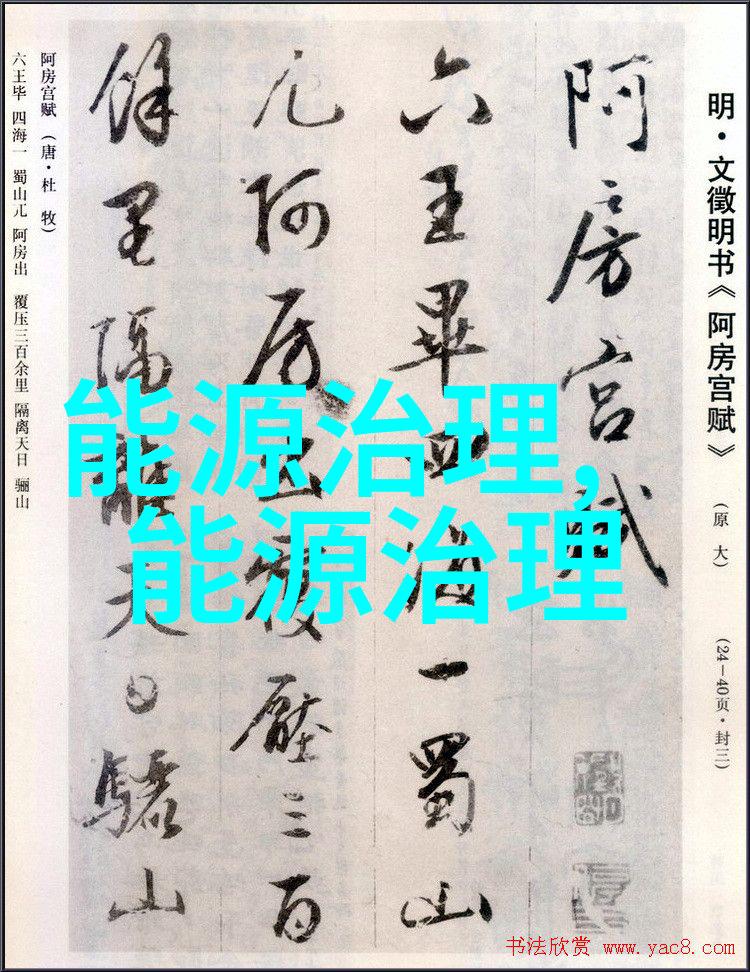 明·文徵明书《阿房宫赋》 (原大) (24—40页·封三)
阿房宫賦
六王畢四海一蜀山
兀阿房出覆壓三百
餘里隔離天日驪山
阿房宫赋（唐·杜 牧）
六王毕 四海一 蜀山兀 阿房出 覆压三百余里 隔离天日 骊山
能源治理,
能源治理
书法欣赏 www.yac8.com